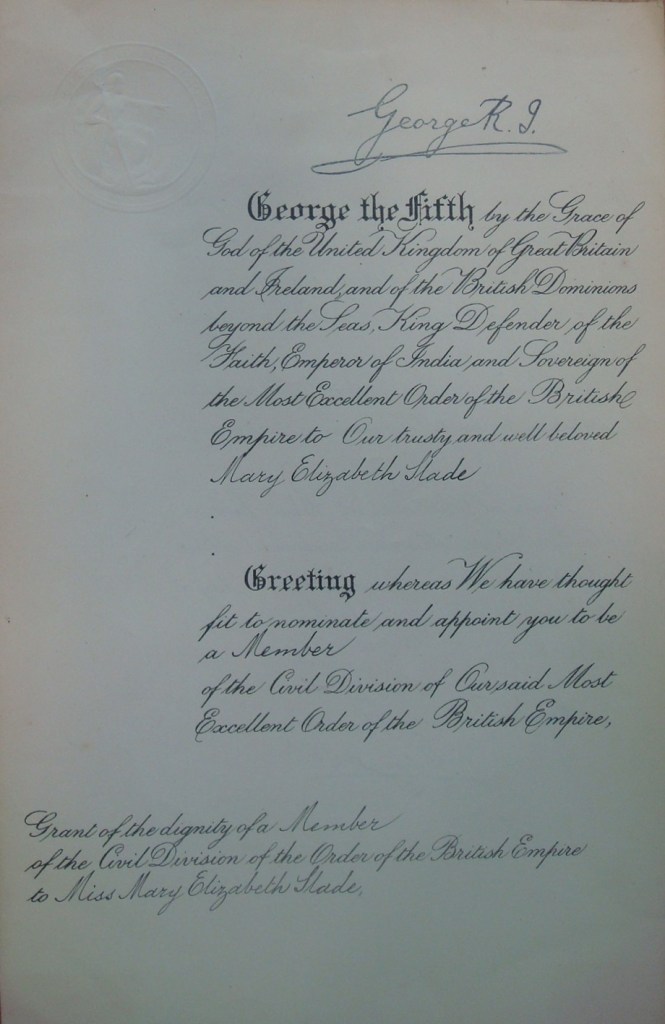 George R.I.
George the Fifth by the Grace of
God of the United Kingdom of Great Britain
and Ireland, and of the British Dominions
beyond the Seas, King Defender, of the
Faith, Emperor of India and Sovereign of
the Most Excellent Order of the British
Empire to Our trusty and well beloved
Mary Elizabeth Slade
Greeting whereas We have thought
fit to nominate and appoint you to be
a Member
of the Civil Division of Our said Most
Excellent Order of the British Empire,
Grant of the dignity of a Member
of the Civil Division of the Order of the British Empire
to Miss Mary Elizabeth Slade.